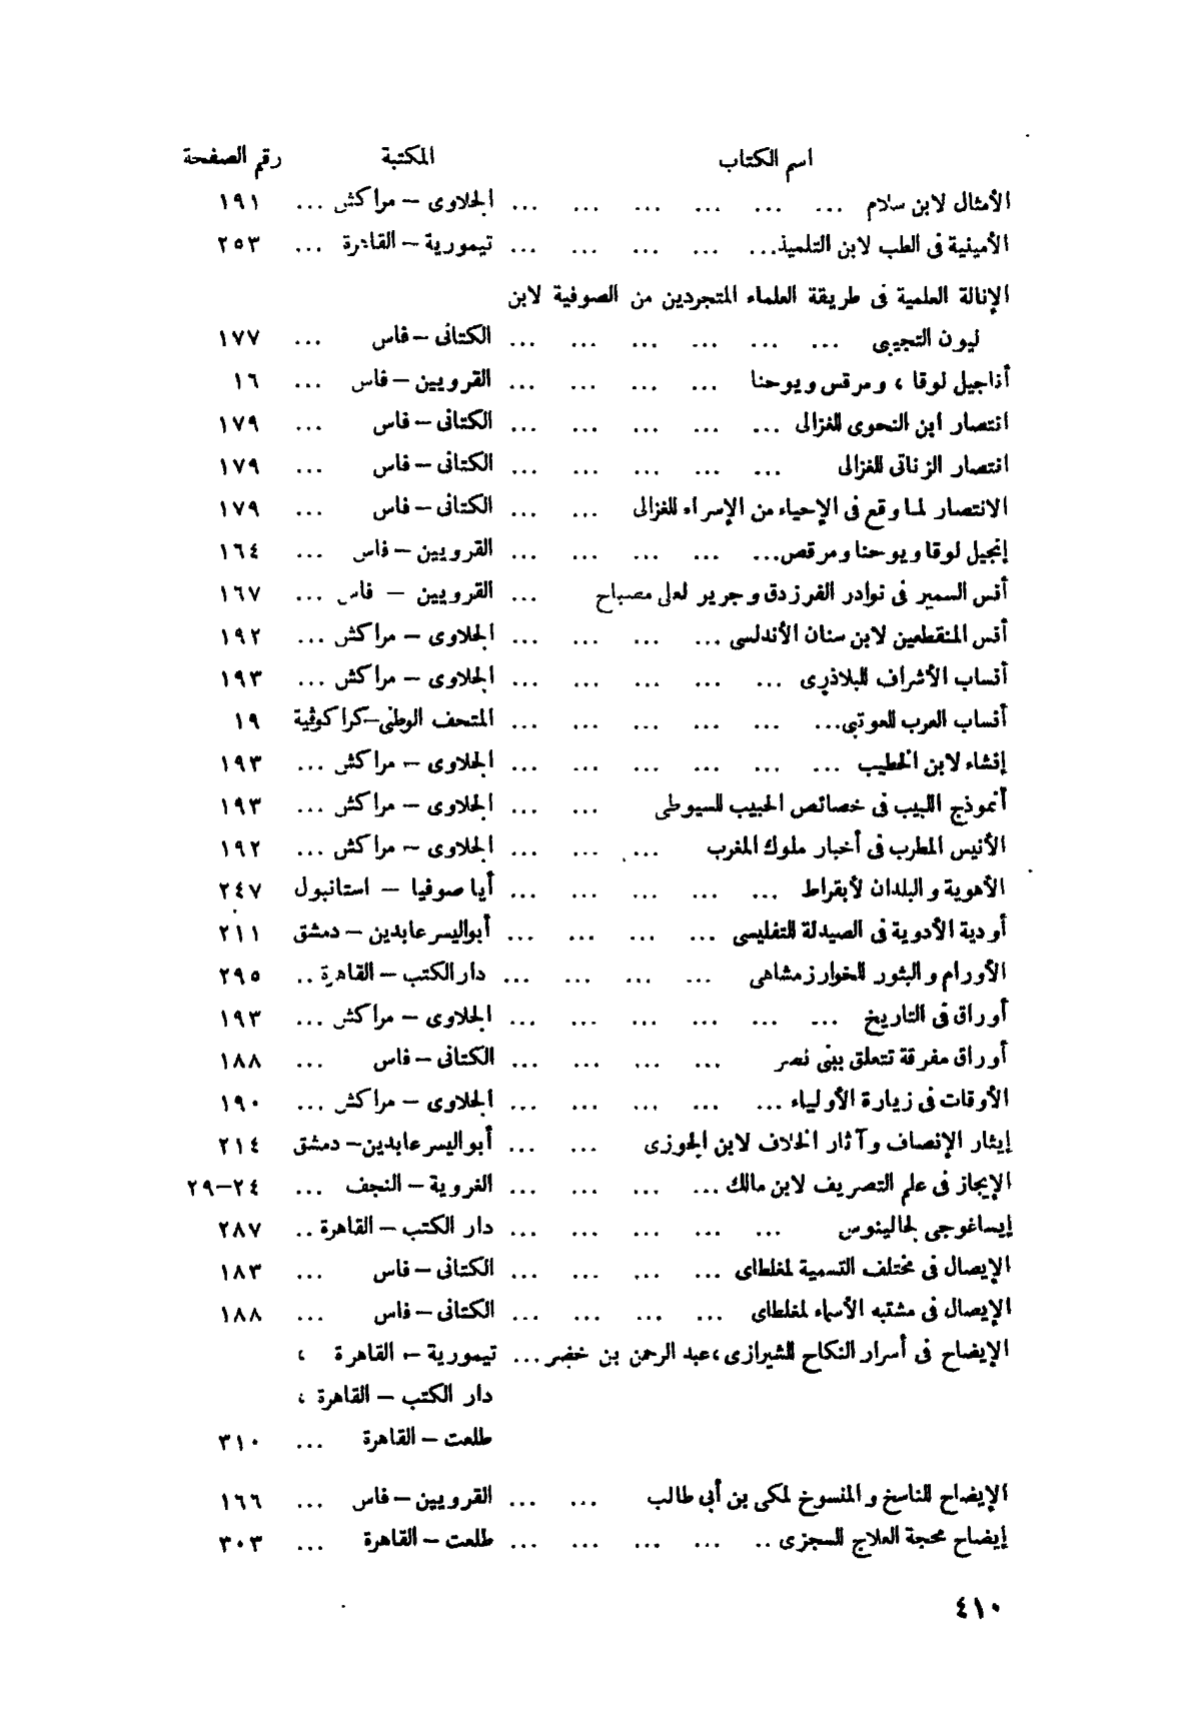 اسم الكتاب المكتبة رقم الصفحة
الأمثال لابن سلام ... ... ... ... ... ... الجلاوى – مراكش ... ١٩١
الأمينية فى الطب لابن التلميذ... ... ... ... ... تيمورية – القاهرة ... ٢٥٣
الإنالة العلمية فى طريقة العلماء المتجردين من الصوفية لابن
ليون التجيبى ... ... ... ... ... ... الكتانى – فاس ... ١٧٧
أناجيل لوقا ، ومرقس ويوحنا ... ... ... ... القرويين – فاس ... ١٦
انتصار ابن النحوى للغزالى ... ... ... ... ... الكتانى – فاس ... ١٧٩
انتصار الزناتى للغزالى ... ... ... ... ... الكتانى – فاس ... ١٧٩
الانتصار لما وقع فى الإحياء من الإسراء للغزالى ... ... الكتانى – فاس ... ١٧٩
إنجيل لوقا ويوحنا ومرقص... ... ... ... ... القرويين – فاس ... ١٦٤
أنس السمير فى نوادر الفرزدق وجرير لعلى مصباح ... القرويين – فاس ... ١٦٧
أنس المنقطعين لابن سنان الأندلسى ... ... ... ... الجلاوى – مراكش ... ١٩٢
أنساب الأشراف للبلاذرى ... ... ... ... ... الجلاوى – مراكش ... ١٩٣
أنساب العرب للعوتبى... ... ... ... ... ... المتحف الوطنى–كراكوڤية ١٩
إنشاء لابن الخطيب ... ... ... ... ... ... الجلاوى – مراكش ... ١٩٣
أنموذج اللبيب فى خصائص الحبيب للسيوطى ... ... الجلاوى – مراكش ... ١٩٣
الأنيس المطرب فى أخبار ملوك المغرب ... ... ... الجلاوى – مراكش ... ١٩٢
الأهوية والبلدان لأبقراط ... ... ... ... ... أيا صوفيا – استانبول ٢٤٧
أودية الأدوية فى الصيدلة للتفليسى ... ... ... ... أبواليسر عابدين – دمشق ٢١١
الأورام والبثور للخوارزمشاهى ... ... ... ... دار الكتب – القاهرة .. ٢٩٥
أوراق فى التاريخ ... ... ... ... ... ... الجلاوى – مراكش ... ١٩٣
أوراق مفرقة تتعلق ببنى نصر ... ... ... ... الكتانى – فاس ... ١٨٨
الأوقات فى زيارة الأولياء ... ... ... ... ... الجلاوى – مراكش ... ١٩٠
إيثار الإنصاف وآثار الخلاف لابن الجوزى ... ... أبواليسر عابدين– دمشق ٢١٤
الإيجاز فى علم التصريف لابن مالك ... ... ... ... الغروية – النجف ... ٢٤–٢٩
إيساغوجى لجالينوس ... ... ... ... ... دار الكتب – القاهرة .. ٢٨٧
الإيصال فى مختلف التسمية لمغلطاى ... ... ... ... الكتانى – فاس ... ١٨٣
الإيصال فى مشتبه الأسماء لمغلطاى ... ... ... ... الكتانى – فاس ... ١٨٨
الإيضاح فى أسرار النكاح للشيرازى ،عبد الرحمن بن خضر ... تيمورية – القاهرة ،
دار الكتب – القاهرة ،
طلعت – القاهرة ... ٣١٠
الإيضاح للناسخ والمنسوخ لمكى بن أبى طالب ... ... القرويين – فاس ... ١٦٦
إيضاح محجة العلاج للسجزى .. ... ... ... ... طلعت – القاهرة ... ٣٠٣
٤١٠